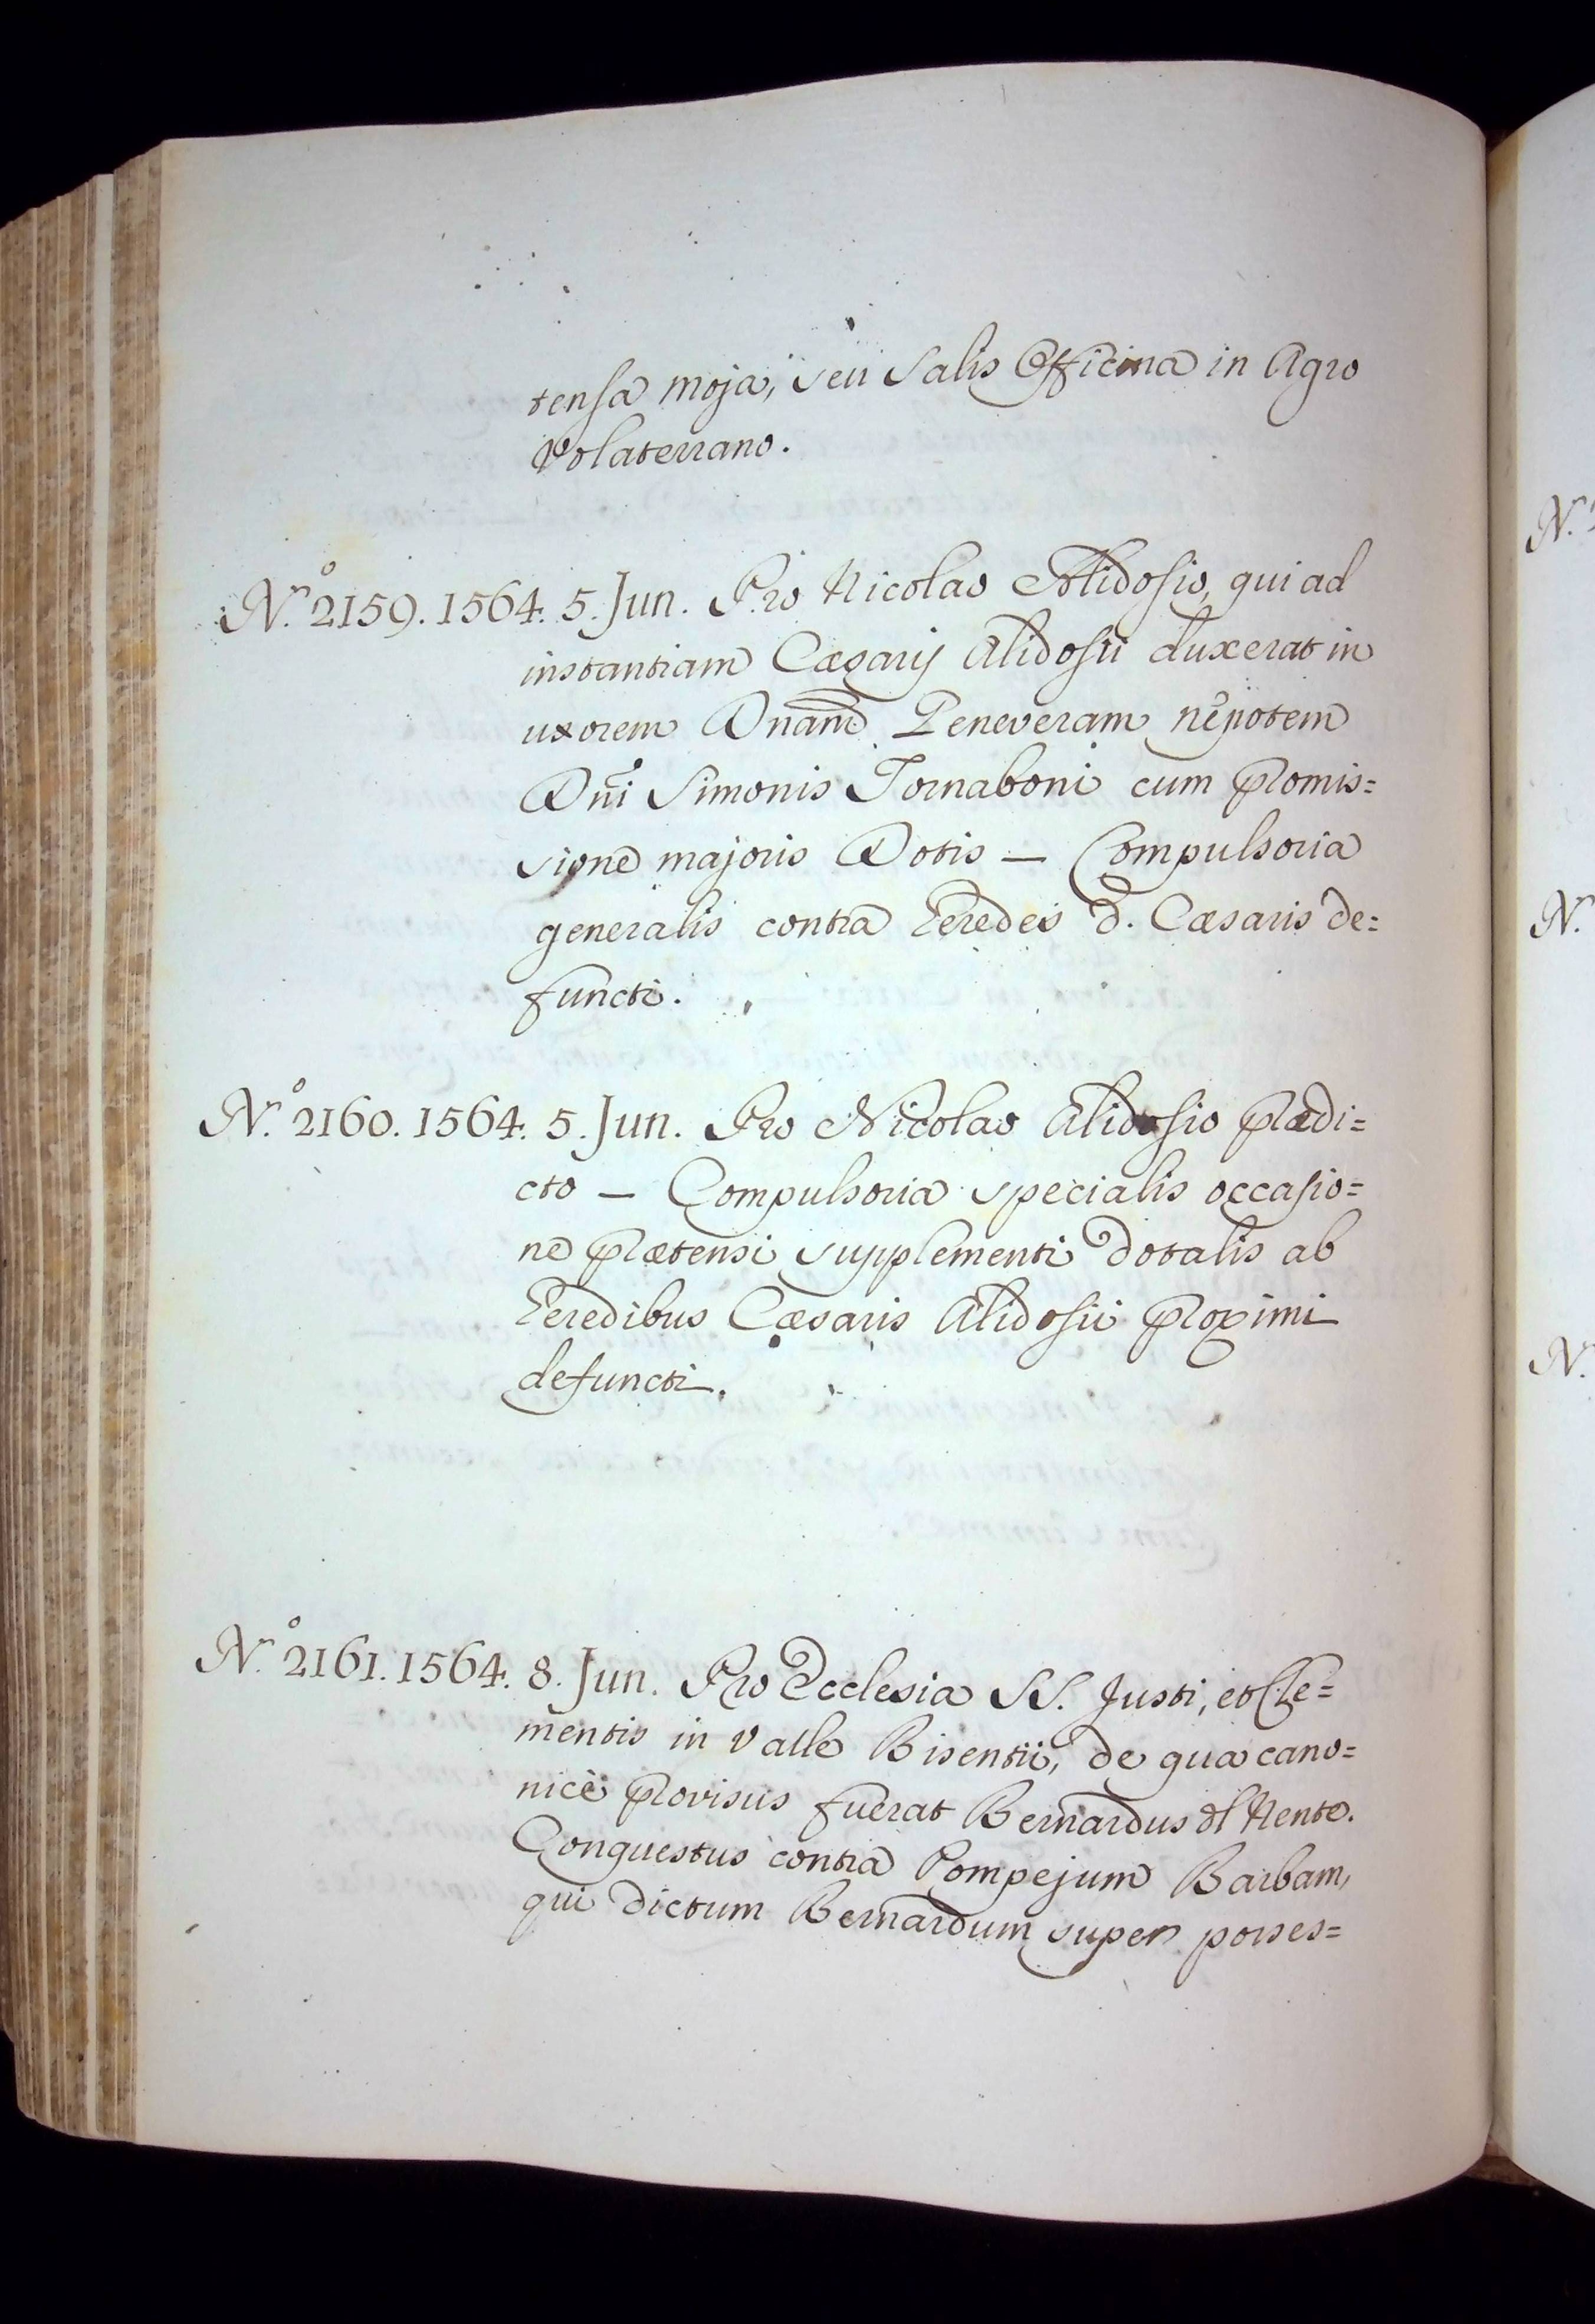 tensa moja, seu Salis Officina in Agro
Volaterrano.
N.º 2159. 1564. 5. Jun. Pro Nicolao Alidosio, qui ad
instantiam Cæsarij Alidosii duxerat in
uxorem Dnam Peneveram nepotem
Dni Simonis Tornaboni cum promis=
sione majoris Dotis — Compulsoria
generalis contra Heredes d. Cæsaris de=
functi.
N.º 2160. 1564. 5. Jun. Pro Nicolao Alidosio prædi=
cto — Compulsoria specialis occasio=
ne prætensi supplementi dotalis ab
Heredibus Cæsaris Alidosii proximi
defuncti.
N.º 2161. 1564. 8. Jun. Pro Ecclesia SS. Justi, et Cle=
mentis in Valle Bisentii, de qua cano=
nicè provisus fuerat Bernardus
Conquestus contra Pompejum Barbam,
qui dictum Bernardum super posses=
N.
N.
N.